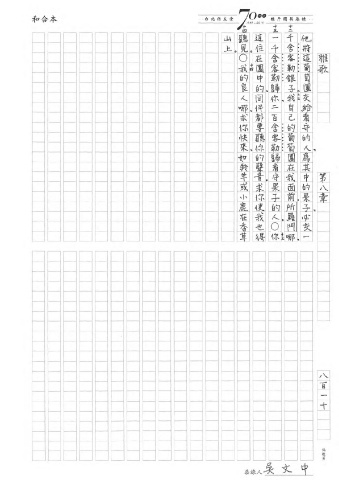 和合本
70
雅歌 第八章 八百一十
他將這葡萄園交給看守的人為其中的果子必交一
千舍客勒銀子我自己的葡萄園在我面前所羅門哪
一千舍客勒歸你二百舍客勒歸看守果子的人○你
這住在園中的同伴都要聽你的聲音求你使我也得
聽見○我的良人哪求你快來如羚羊或小鹿在香草
山上。
恭錄人 吳文中